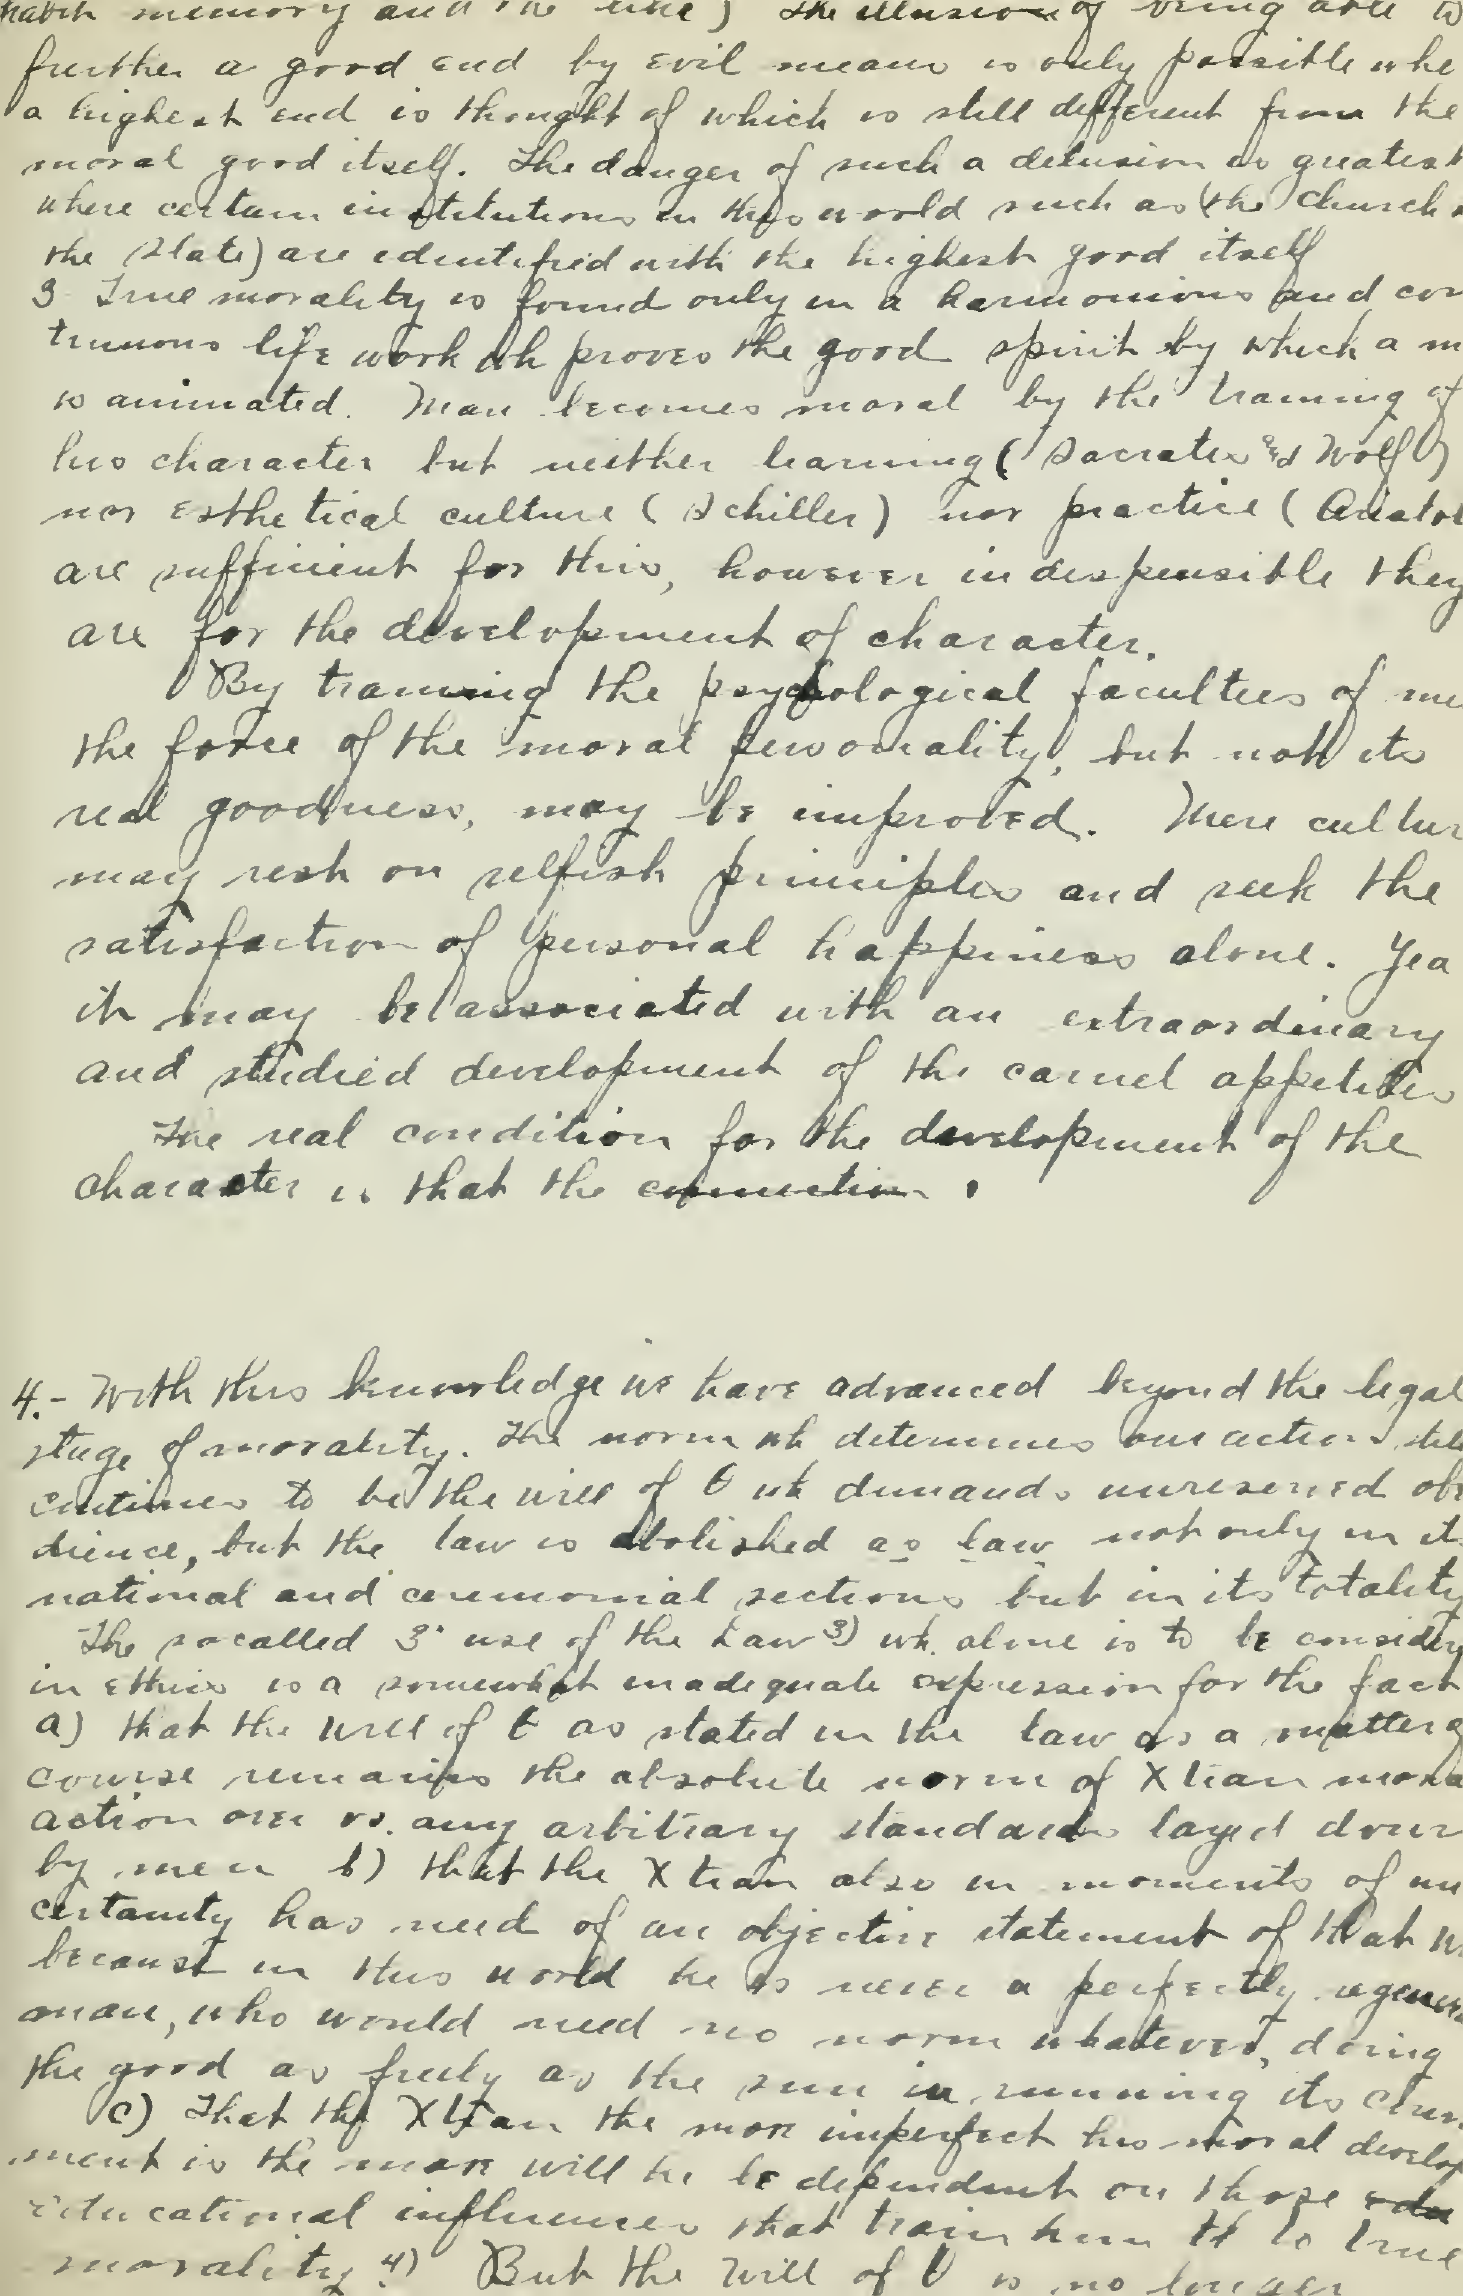 habit memory and the like) The illusion of being able to
further a good end by evil means is only possible whe
a highest end is thought of which is still different from the
moral good itself. The danger of such a delusion is greatest
where certain institutions in this world such as (the church
the State) are identified with the highest good itself
3 True morality is found only in a harmonious and con
tinuous life work wh proves the good spirit by which a m
is animated. Man becomes moral by the training of
his character but neither learning (Socrates and Wolf)
nor esthetical culture (Schiller) nor practice (Aristot
are sufficient for this, however indespensible they
are for the development of character.
By training the psychological faculties of me
the force of the moral personality, but not its
real goodness, may be improved. Mere cultur
may rest on selfish principles and seek the
satisfaction of personal happiness alone. Yea
it may be associated with an extraordinary
and studied development of the carnel appetites
The real condition for the development of the
character is that the connection.
4.- With this knowledge we have advanced beyond the legal
stage of morality. The norm wh determines our action still
continues to be the will of θ wh demands unreserved obe
dience, but the law is abolished as law not only in its
national and ceremonial sections but in its totality
The socalled 3· use of the Law 3) wh. alone is to be consider
in ethics is a somewhat inadequate expression for the fact
a) that the will of θ as stated in the law as a matter o
course remains the absolute norm of Xtian mora
action over vs. any arbitrary standards layed down
by men b) that the Xtian also in moments of un
certainty has need of an objective statement of that w
because in this world he is never a perfectly regener
man, who would need no norm whatever, doing
the good as freely as the sun in running its
c) That the Xtian the more imperfect his moral develop
ment is the more will he be dependent on those
educational influences that train him to true
morality 4) But the will of θ is no longer